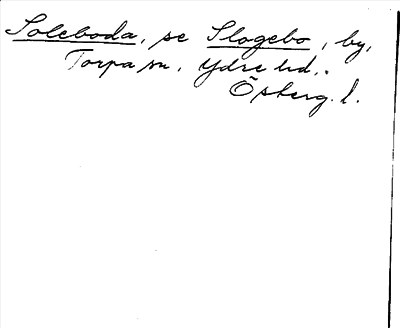 Soleboda, se Slogebo, by,
Torpa sn. Ydre hd..
Österg. l.